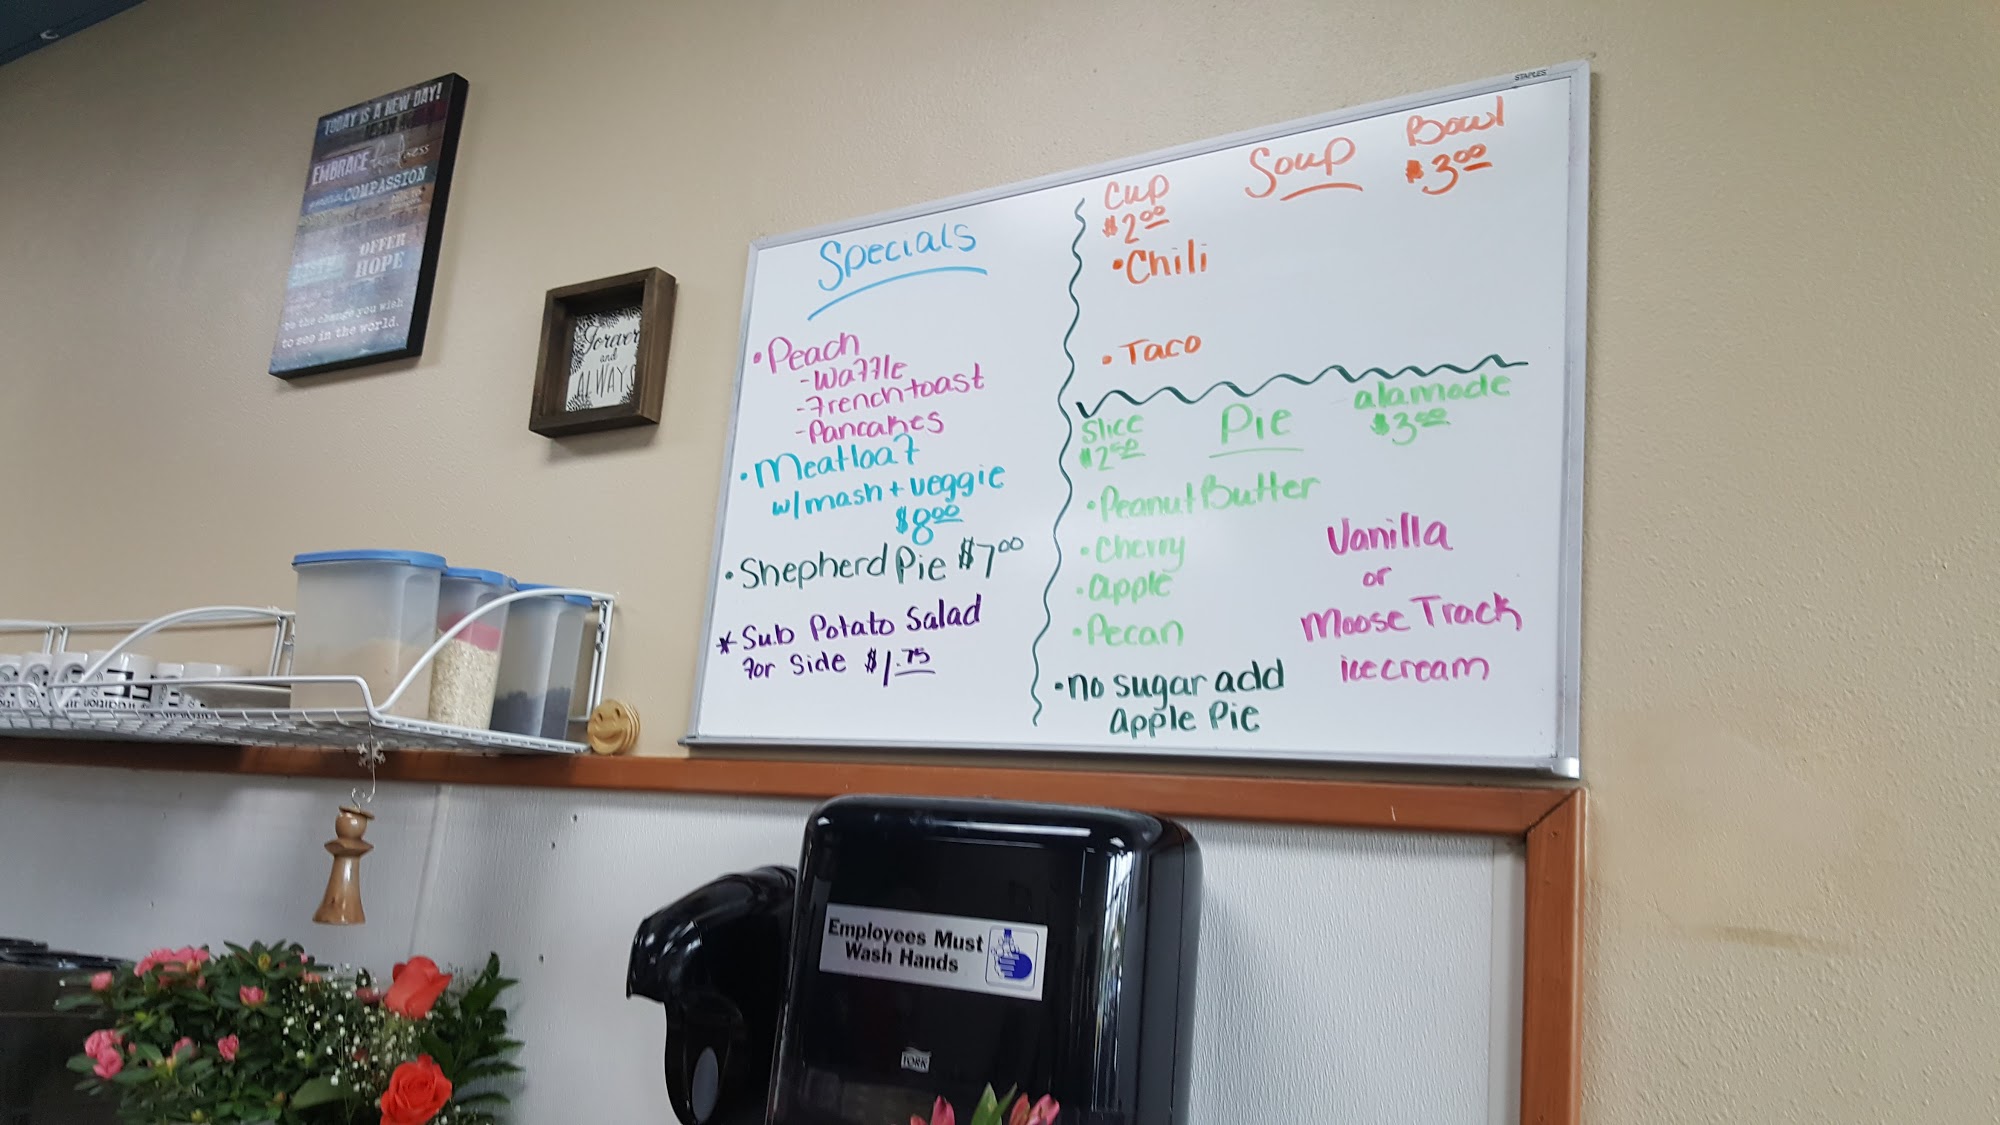 TODAY IS A NEW DAY!
EMBRACE kindness
COMPASSION
OFFER
HOPE
be the change you wish
to see in the world.
Forever
and
ALWAYS
STAPLES
Specials
• Peach
- Waffle
- Frenchtoast
- Pancakes
• Meatloaf
w/mash + veggie
$8.00
• Shepherd Pie $7.00
* Sub Potato Salad
for Side $1.75
Soup
Cup
$2.00
Bowl
$3.00
• Chili
• Taco
Pie
Slice
$2.50
alamode
$3.50
• Peanut Butter
• Cherry
• apple
• Pecan
• no sugar add
apple Pie
Vanilla
or
Moose Track
icecream
Employees Must
Wash Hands
TORK